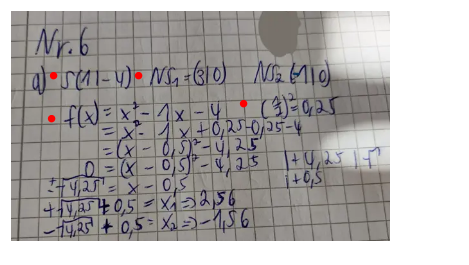 Nr. 6
a) S(1|-4) NS₁=(3|0) NS₂(-1|0)
f(x) = x² - 1x - 4 (1/2)²=0,25
= x² - 1x + 0,25 - 0,25 - 4
= (x - 0,5)² - 4,25
0 = (x - 0,5)² - 4,25 |+ 4,25 | √
±√4,25 = x - 0,5 |+0,5
+√4,25 + 0,5 = x₁ => 2,56
-√4,25 + 0,5 = x₂ => -1,56